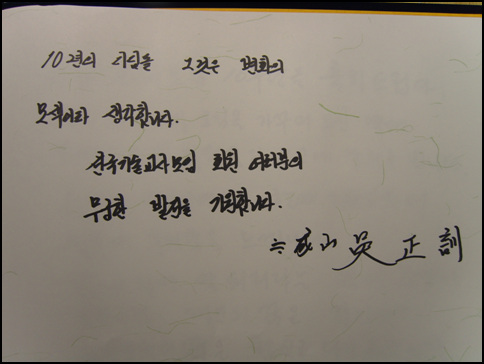 10년의 그것은 변화의
생각합니다.
전국기술교사모임 회원 여러분의
무궁한 발전을 기원합니다.
吳 正 訓